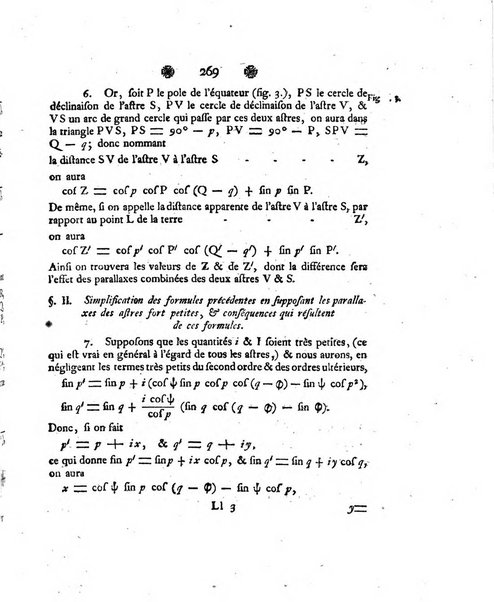 269
6. Or, ſoit P le pole de l'équateur (fig. 3.), PS le cercle de Fig. 3.
déclinaiſon de l'aſtre S, PV le cercle de déclinaiſon de l'aſtre V, &
VS un arc de grand cercle qui paſſe par ces deux aſtres, on aura dans
la triangle PVS, PS = 90° — p, PV = 90° — P, SPV =
Q — q; donc nommant
la diſtance SV de l'aſtre V à l'aſtre S - - - - Z,
on aura
coſ Z = coſ p coſ P coſ (Q — q) + ſin p ſin P.
De même, ſi on appelle la diſtance apparente de l'aſtre V à l'aſtre S, par
rapport au point L de la terre - - - - Z',
on aura
coſ Z' = coſ p' coſ P' coſ (Q' — q') + ſin p' ſin P'.
Ainſi on trouvera les valeurs de Z & de Z', dont la différence ſera
l'effet des parallaxes combinées des deux aſtres V & S.
§. II. Simplification des formules précédentes en ſuppoſant les paralla-
xes des aſtres fort petites, & conſéquences qui réſultent
de ces formules.
7. Suppoſons que les quantités i & I ſoient très petites, (ce
qui eſt vrai en général à l'égard de tous les aſtres,) & nous aurons, en
négligeant les termes très petits du ſecond ordre & des ordres ultérieurs,
ſin p' = ſin p + i (coſ ψ ſin p coſ p coſ (q — Φ) — ſin ψ coſ p²),
ſin q' = ſin q + i coſ ψ / coſ p (ſin q coſ (q — Φ) — ſin Φ).
Donc, ſi on fait
p' = p + ix, & q' = q + iy,
ce qui donne ſin p' = ſin p + ix coſ p, & ſin q' = ſin q + iy coſ q,
on aura
x = coſ ψ ſin p coſ (q — Φ) — ſin ψ coſ p,
Ll 3 y=